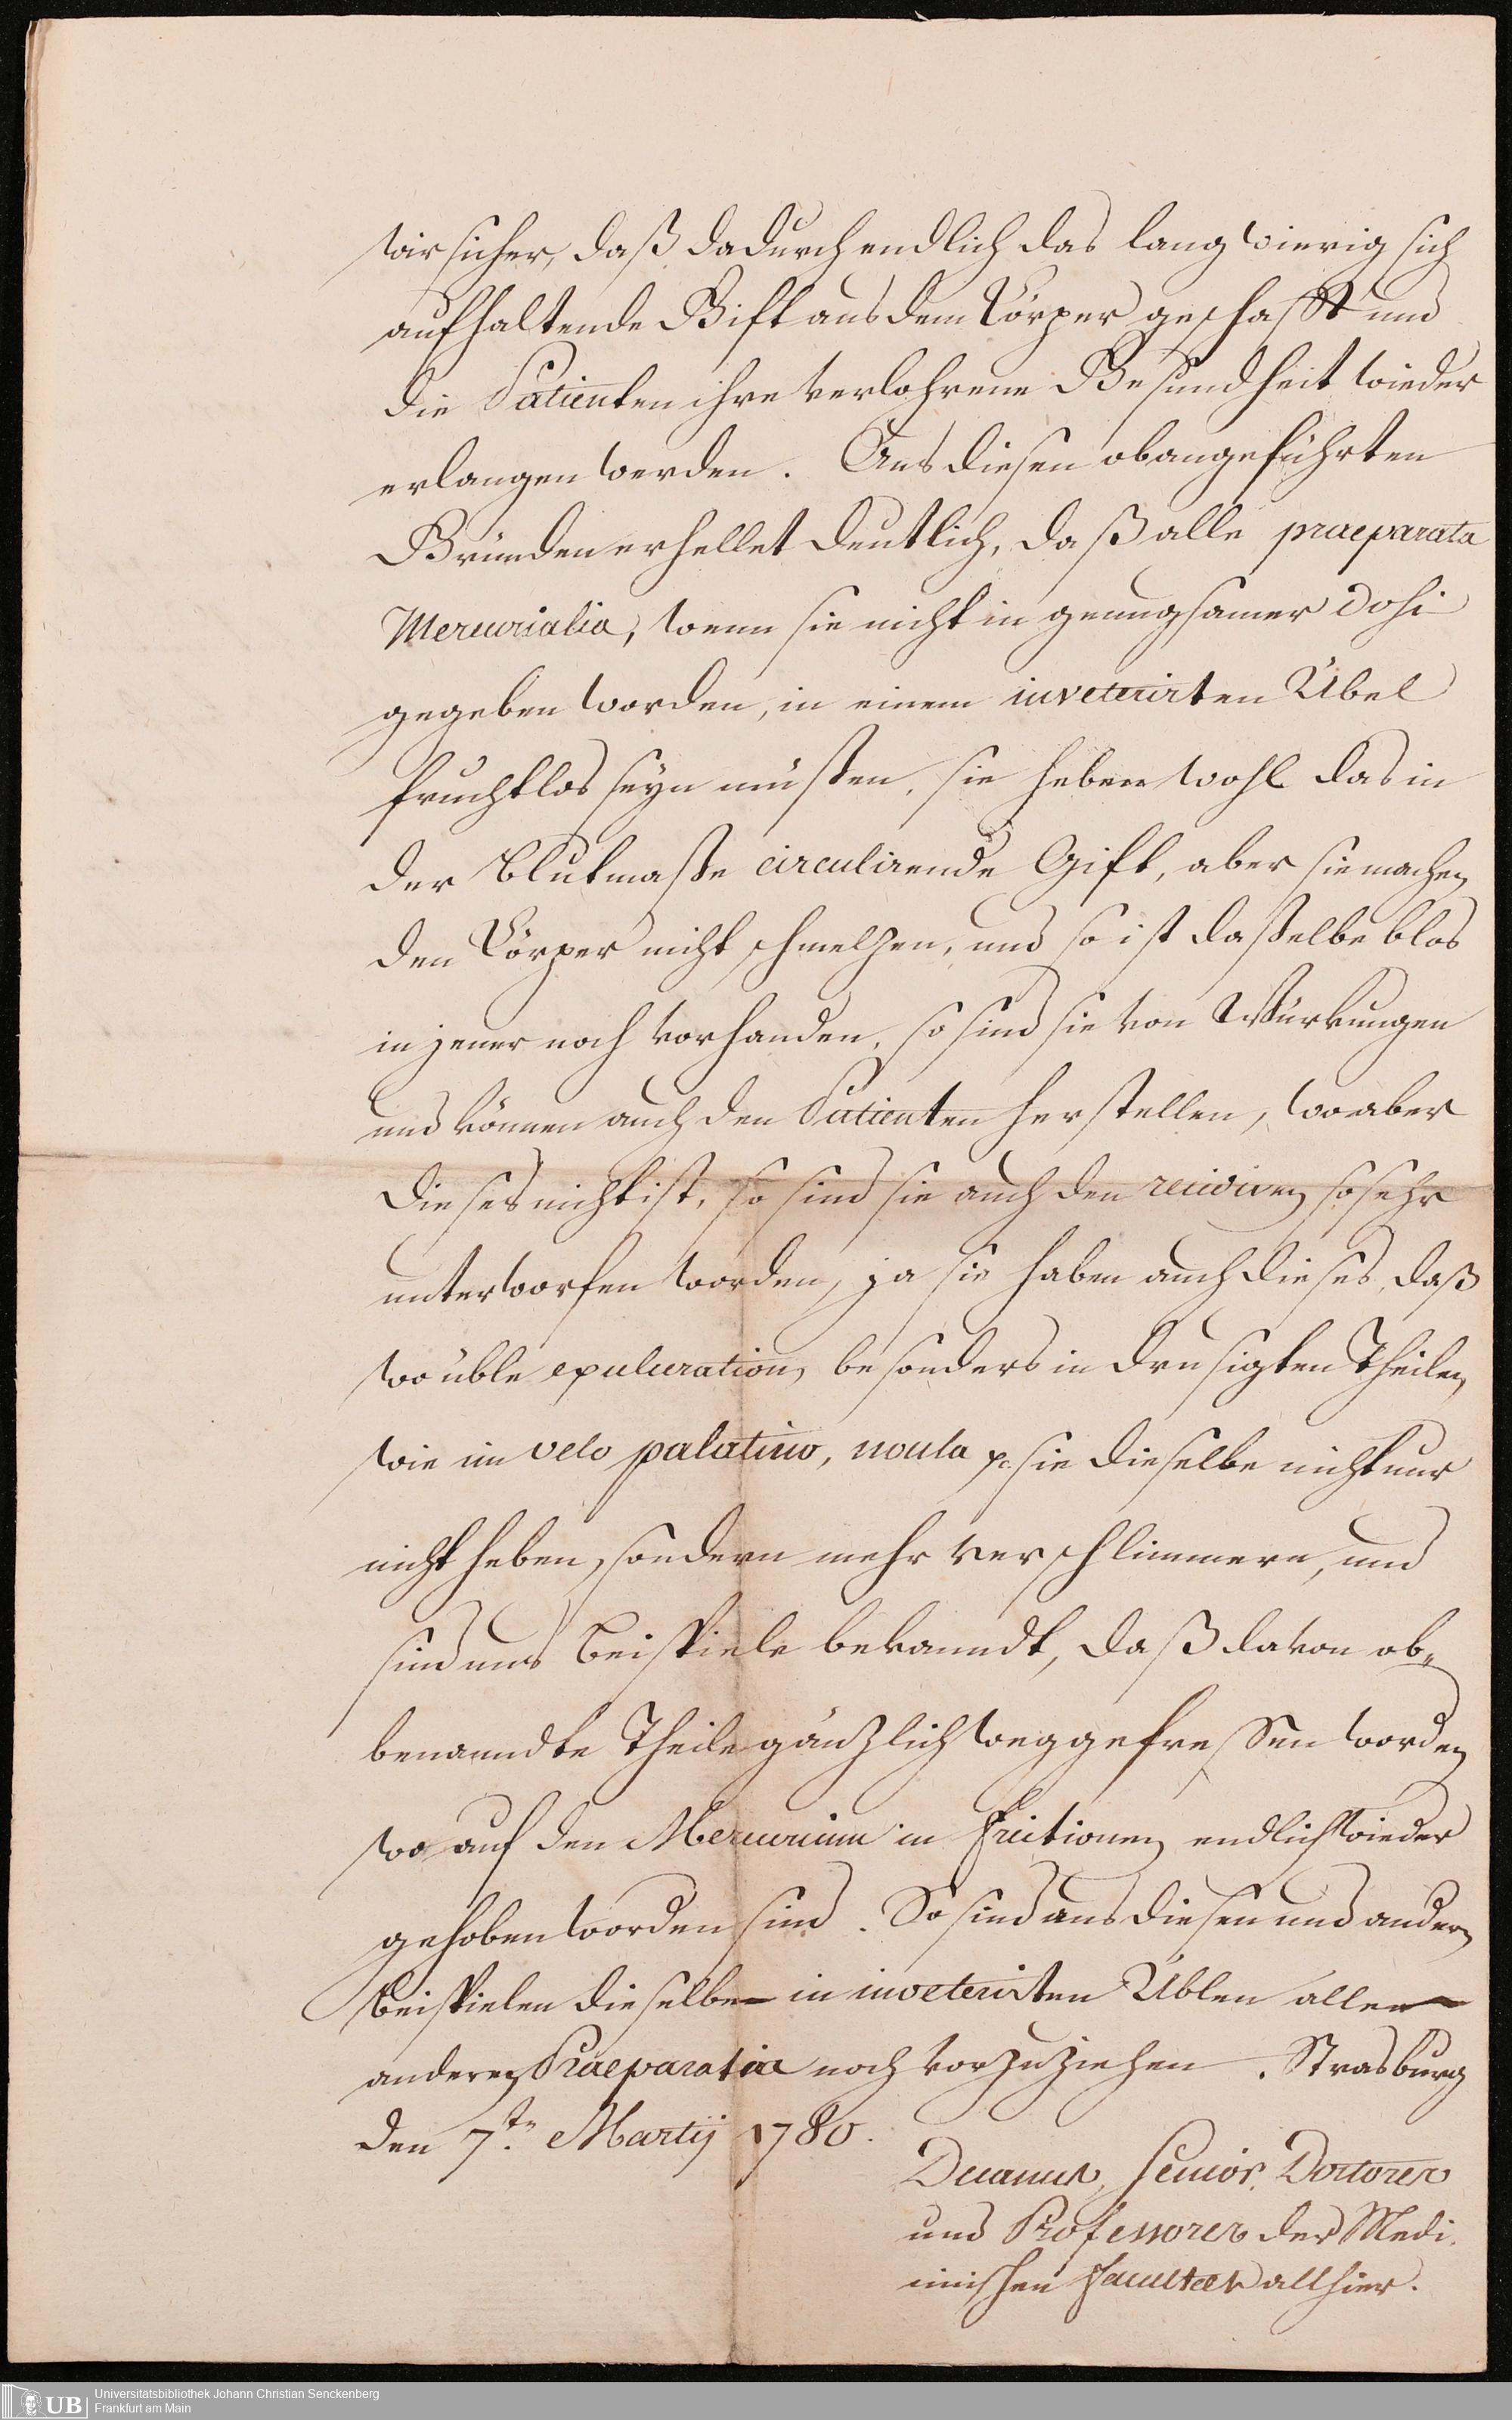 wir sicher, daß dadurch endlich das langwierig sich
aufhaltende Gift aus dem Cörper geschafft und
die Patienten ihre verlohrene Gesundheit wieder
erlangen werden. Aus diesen obangeführten
Gründen erhellet deutlich, daß alle praeparata
Mercurialia, wenn sie nicht in genugsamer Dosi
gegeben worden, in einem inveterirten Übel
fruchtlos seyn müßen, sie heben wohl das in
der Blutmaße circulirende Gift, aber sie machen
den Cörper nicht schmelzen, und so ist daßelbe blos
in jener noch vorhanden, so sind sie von Würkungen
und können auch den Patienten herstellen, wo aber
dieses nicht ist, so sind sie auch den reciditven so sehr
unterworfen worden, ja sie haben auch dieses, daß
wo üble exulceration, besonders in drusigten Theilen,
wie im velo palatino, uvula pc. sie dieselbe nicht nur
nicht heben, sondern mehr verschlimmern, und
sind uns Beispiele bekanndt, daß davon ob-
benanndte Theile gänzlich weggefreßen worden
wo auf den Mercurium in frictionen endlich wieder
gehoben worden sind. So sind aus diesen und andern
Beispielen dieselbe in inveterirten Üblen allen
anderen Praeparatia noch vorzuziehen. Strasburg
den 7.ten Martij 1780.
Decanus, Senior, Doctores
und Professores der Medi-
cinischen Facultaet allhier.
UB
Universitätsbibliothek Johann Christian Senckenberg
Frankfurt am Main